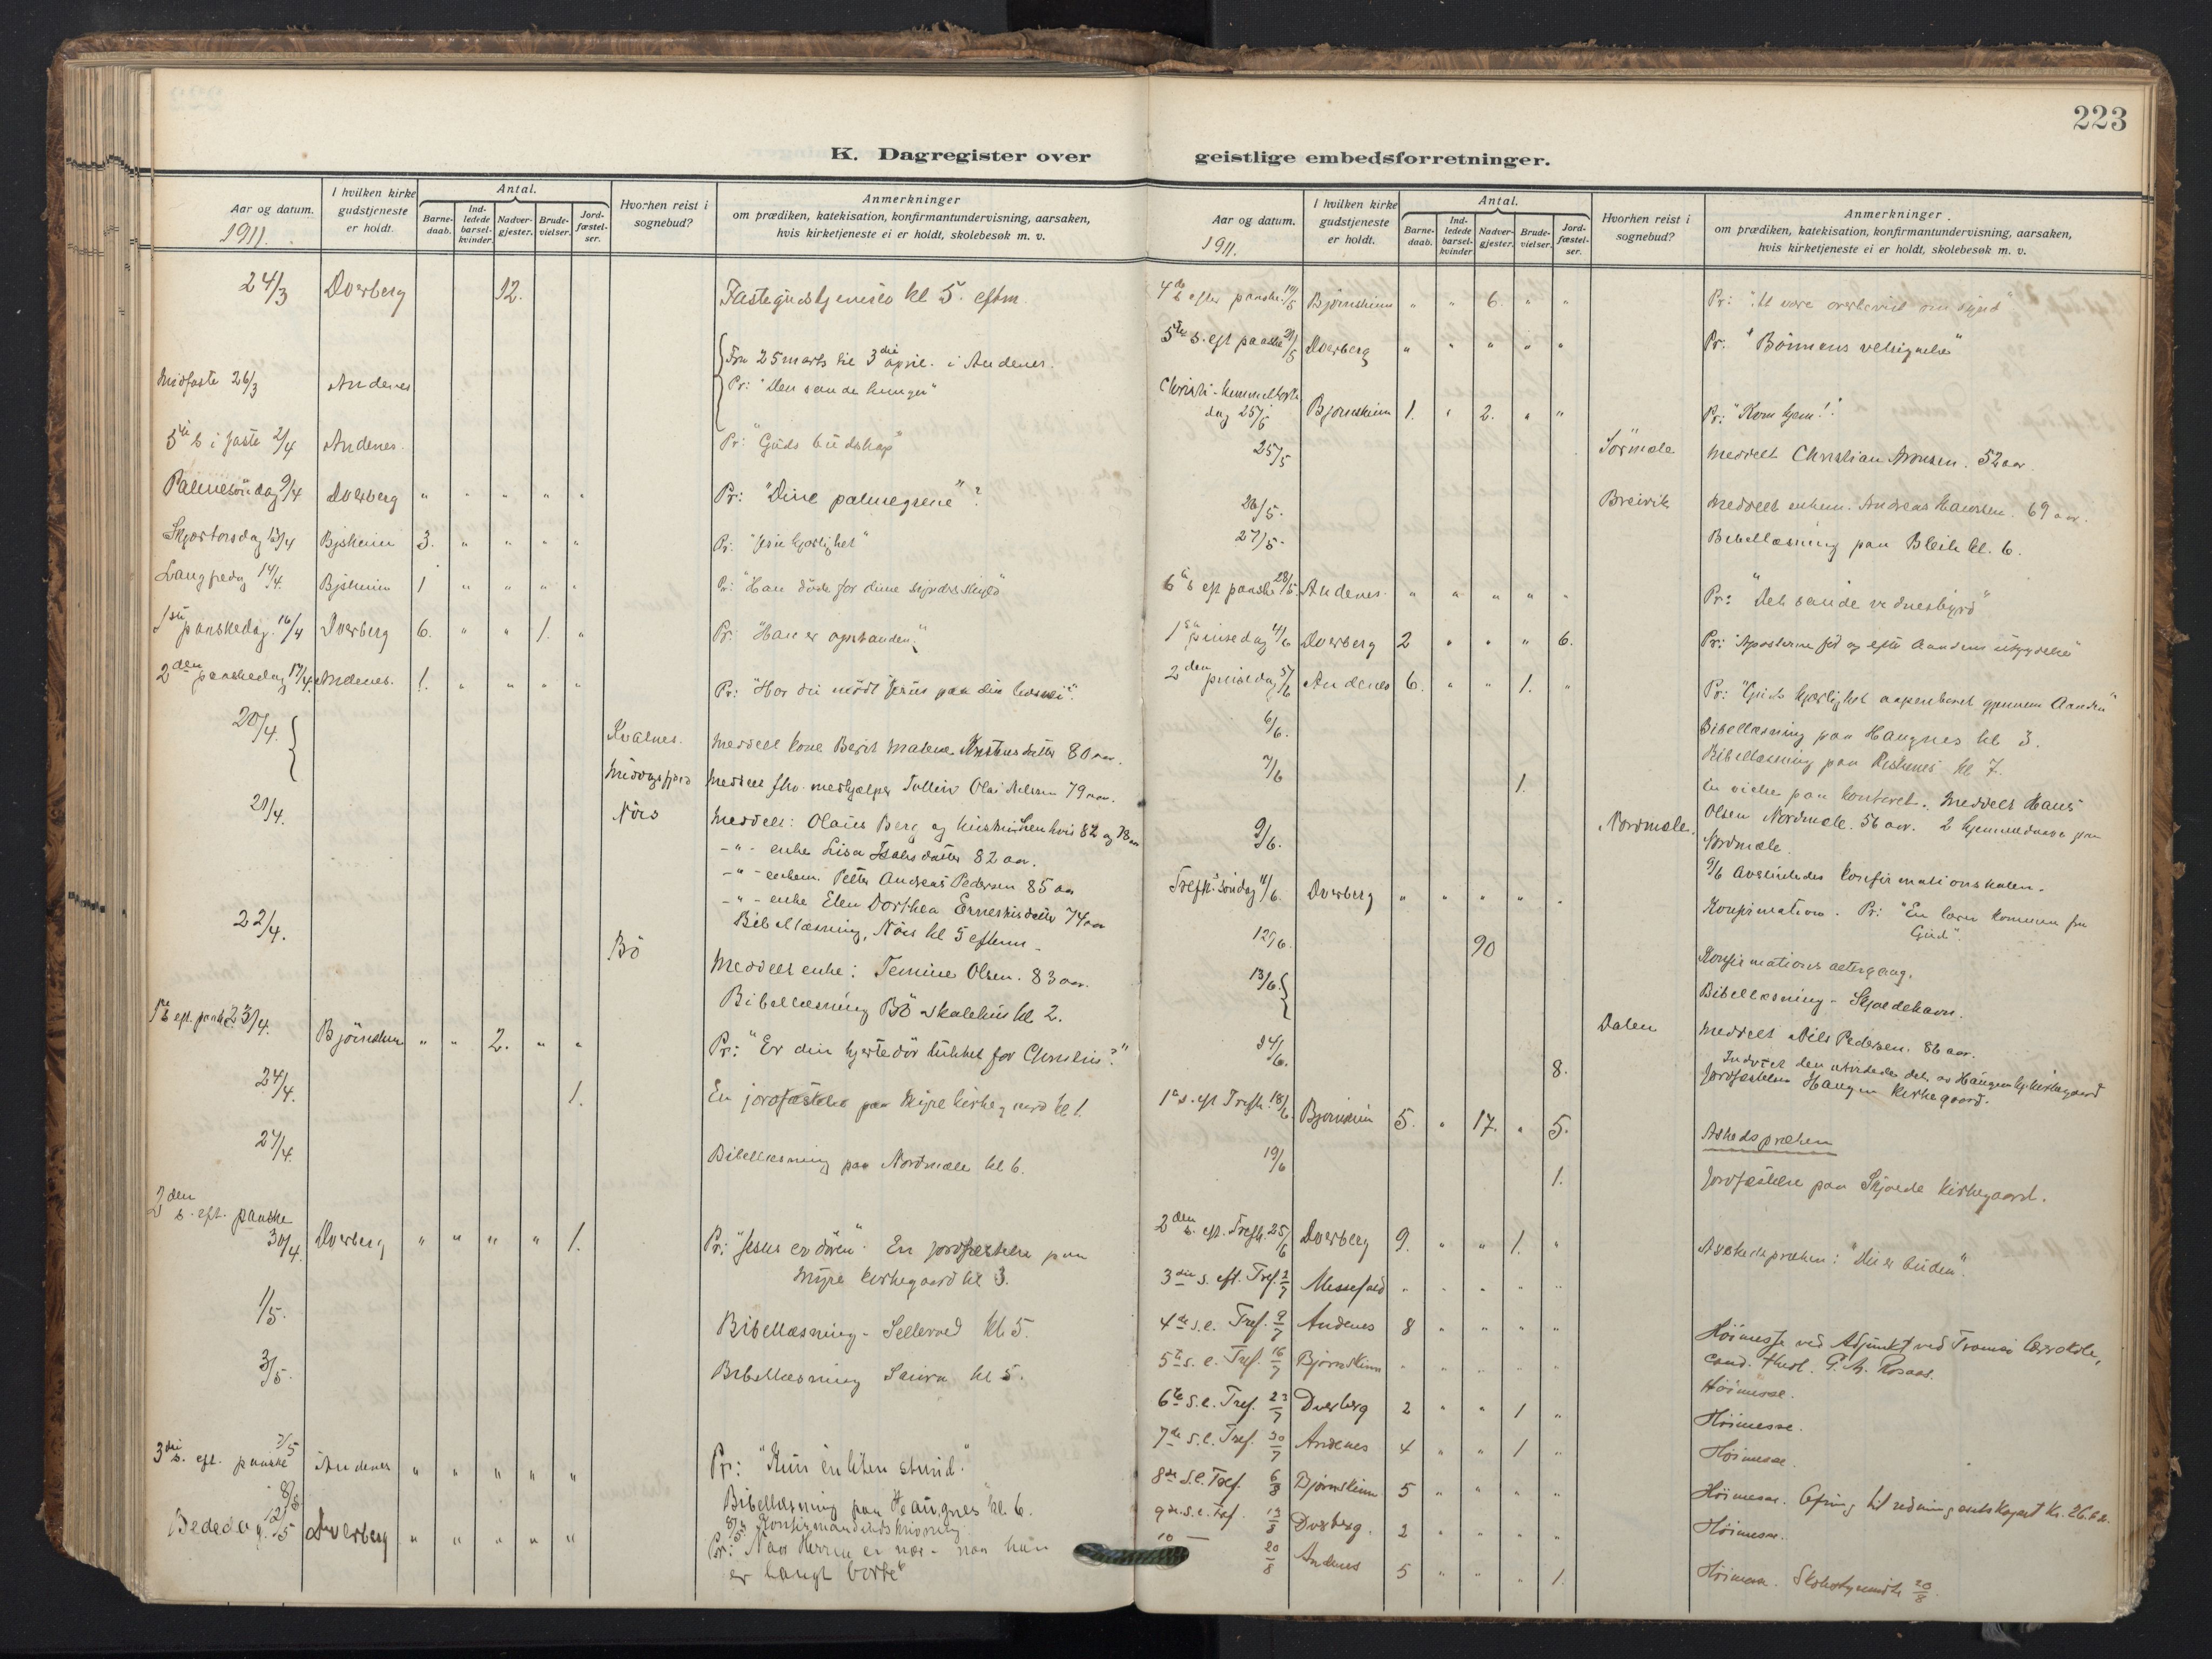 223
K. Dagregister over geistlige embedsforretninger.
Aar og datum.
1911.
I hvilken kirke gudstjeneste er holdt.
Antal.
Barnedaab.
Indledede barselkvinder.
Nadvergjester.
Brudevielser.
Jordfæstelser.
Hvorhen reist i sognebud?
Anmerkninger
om prædiken, katekisation, konfirmantundervisning, aarsaken,
hvis kirketjeneste ei er holdt, skolebesøk m. v.
24/3 Dverberg 12. Fastegudstjeneste kl 5. eftm.
Fra 25 marts til 3die april. i Andenes.
Midfaste 26/3 Andenes Pr: "Den sande hunger"
5te s i faste 2/4 Andenes. Pr: "Guds budskap"
Palmesöndag 9/4 Dverberg " " " " " Pr: "Dine palmegrene"?
Skjærtorsdag 13/4 Bjskinn 3. " " " " Pr: "Jesu kjærlighet"
Langfredag 14/4. Bjskinn 1 " " " " Pr: "Han döde for dine synders skyld"
1ste paaskedag. 16/4 Dverberg 6. " " 1. " Pr: "Han er opstanden."
2den paaskedag 17/4. Andenes. 1. " " " " Pr: "Har du mödt Jesus paa din livsvei?"
20/4. Kvalnes. Meddelt kone Berit Malene 80 aar.
Meddelt fhv. medhjælper Tollev Olai Nilsen 79 aar.
21/4. Nöss Meddelt: Olaus Berg og hustru 82 og 78 aar
-"- enke Lisa 82 aar.
-"- enkem. Petter Andreas Pedersen 85 aar
-"- enke Elen Dorthea 74 aar
Bibellæsning, Nöss kl 5 efterm.
22/4. Bö Meddelt enke: Olsen. 83 aar.
Bibellæsning Bö skolehus kl 2.
1ste s eft. paaske 23/4. Björnskinn " " 2. " " Pr: "Er din hjertedör lukket for Christus?"
24/4. 1. En jordfæstelse paa Myre kirkegaard kl 1.
27/4. Bibellæsning paa Nordmæle kl 6.
2den s. eft. paaske 30/4. Dverberg " " " " 1. Pr: "Jesus er dören". En jordfæstelse paa
Myre kirkegaard kl 3.
1/5. Bibellæsning - Sellevoll kl 5.
3/5. Bibellæsning Saura kl 5.
3die s. eft. paaske 7/5 Andenes " " " " " Pr: "Kun en liten stund."
8/5 Bibellæsning paa Haugnes kl. 6.
8/5 Konfirmandindskrivning.
Bededag. 12/5 Dverberg " " " " " Pr: "Naar Herren er nær - naar han
er langt borte"
Aar og datum.
1911.
I hvilken kirke gudstjeneste er holdt.
Antal.
Barnedaab.
Indledede barselkvinder
Nadvergjester.
Brudevielser.
Jordfæstelser.
Hvorhen reist i sognebud?
Anmerkninger.
om prædiken, katekisation, konfirmantundervisning, aarsaken,
hvis kirketjeneste ei er holdt, skolebesøk m. v.
4de s efter paaske. 14/5 Björnskinn " " 6. " " Pr: "At være overbevist om synd"
5te s. eft paaske 21/5 Dverberg " " " " " Pr. "Bönnens velsignelse"
Christi himmelfarts
dag 25/5 Bjørnskinn 1. " 2. " " Pr: "Kom hjem!"
25/5 Sörmæle Meddelt Christian Aronsen. 52 aar.
26/5. Breivik Meddelt enkem. Andreas Hanssen. 69 aar.
27/5. Bibellæsning paa Bleik kl. 6.
6te s eft paaske 28/5. Andenes. " " " " " Pr: "Det sande vidnesbyrd"
1ste pinsedag 4/6 Dverberg 2 " " " 6. Pr: "Apostlerne før og efter Aandens utgydelse"
2den pinsedag 5/6 Andenes 6. " " 1. " Pr: "Guds kjærlighet aapenbaret gjennem Aanden"
6/6. Bibellæsning paa Haugnes kl 3.
7/6 1. En vielse paa kontoret. Meddelt Hans
9/6. Nordmæle. Olsen Nordmæle. 56 aar. 2 hjemmedaab paa
Nordmæle.
9/6 Avsluttedes konfirmationsskolen.
Trefh.söndag 11/6. Dverberg " " " " " Konfirmation. Pr: "En lærer kommen fra
Gud".
12/6. 90 Konfirmations altergang.
13/6. Bibellæsning - Skjoldehavn.
Dalen Meddelt Nils Pedersen. 86 aar.
14/6. 8. Indviet den utvidede del av Haugen kirkegaard
Jordfæstelser Haugen kirkegaard.
1ste s. eft Trefh. 18/6. Bjørnskinn 5. " 17. " 5. Avskedspræken
19/6 1. Jordfæstelse paa Skjolde kirkegaard.
2den s. eft. Trefh. 25/6 Dverberg 9. " " 1. " Avskedspræken:
3die s. eft. Tref. 2/7 Messefald " " " " "
4de s.e. Tref. 9/7 Andenes 8 " " " " Höimesse ved Adjunkt ved Tromsö lærerskole,
cand. theol. Rosaas.
5te s. e. Tref. 16/7 Bjørnskinn " " " " " Höimesse.
6te s.e. Tref. 23/7 Dverberg 2 " " 1 " Höimesse.
7de s.e. Tref. 30/7 Andenes 4 " " 1 " Höimesse.
8de s.e. Tref. 6/8 Bjørnskinn 5 " " " " Höimesse. Ofring til redningsselskapet
9de s.e. Tref. 13/8 Dverberg. 2 " " " " Höimesse.
10 — 20/8 Andenes 5 " " " 1. Höimesse. 20/8.